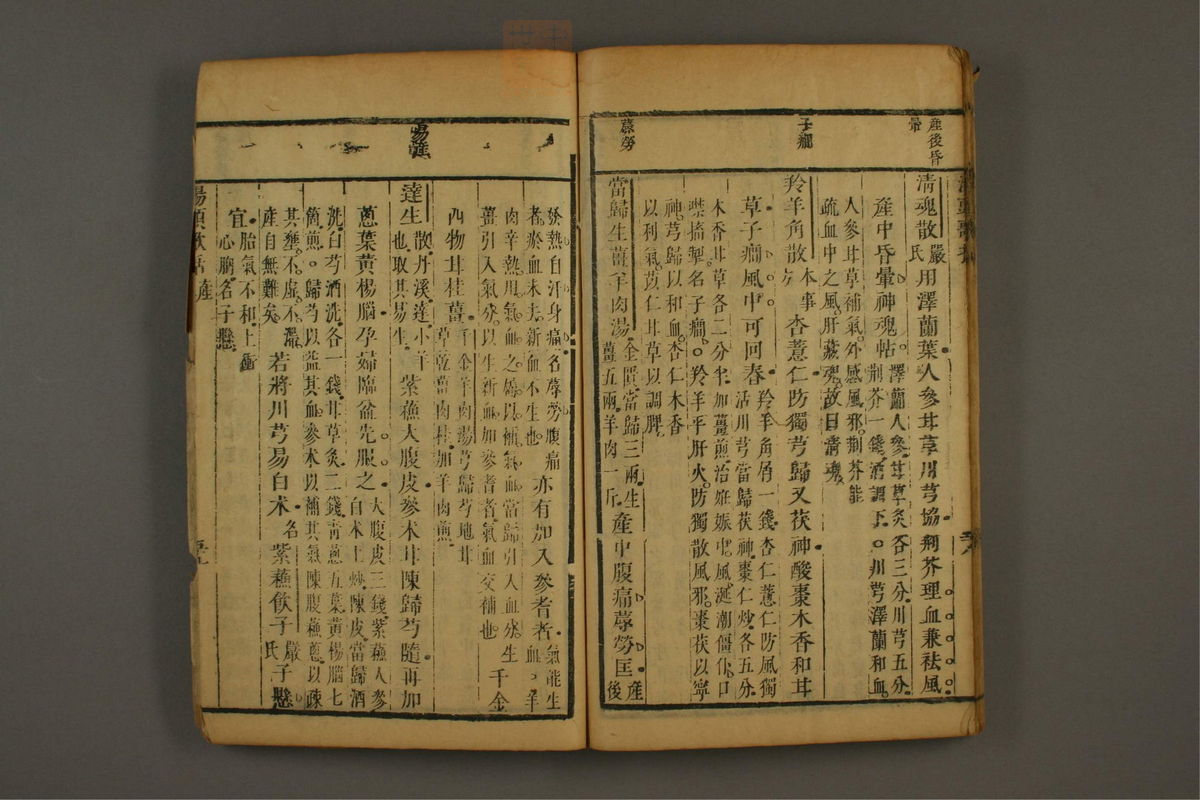 產後昏
暈
子癎
蓐勞
清魂散嚴氏用澤蘭葉人參甘草川芎協荊芥理血兼祛風
產中昏暈神魂帖澤蘭人參甘草炙各三分川芎五分荊芥一錢酒調下○川芎澤蘭和血
人參甘草補氣外感風邪荊芥能
疏血中之風肝藏魂故曰清魂
羚羊角散本事方杏薏仁防獨芎歸又茯神酸棗木香和甘
草子癎風中可回春羚羊角屑一錢杏仁薏仁防風獨活川芎當歸茯神棗仁炒各五分
木香甘草各二分半加薑煎治妊娠中風涎潮僵仆口
噤搐掣名子癎○羚羊平肝火防獨散風邪棗茯以寧
神芎歸以和血杏仁木香
以利氣苡仁甘草以調脾
當歸生薑羊肉湯金匱當歸三兩生薑五兩羊肉一斤產中腹痛蓐勞匡產後
發熱自汗身痛名蓐勞腹痛者瘀血未去新血不生也亦有加入參耆者氣能生血羊
肉辛熱用氣血之屬以補氣血當歸引入血分生
薑引入氣分以生新血加參耆者氣血交補也千金
四物甘桂薑千金羊肉湯芎歸芍地甘草乾薑肉桂加羊肉煎
易產
達生散丹溪達小羊也取其易生紫蘇大腹皮參朮甘陳歸芍隨再加
蔥葉黃楊腦孕婦臨盆先服之大腹皮三錢紫蘇人參白朮土炒陳皮當歸酒
洗白芍酒洗各一錢甘草炙二錢青蔥五葉黃楊腦七
箇煎○歸芍以益其血參朮以補其氣陳腹蘇蔥以疎
其壅不虛不滯產自無難矣若將川芎易白朮名紫蘇飲子嚴氏子懸
宜胎氣不和上衝心胸名子懸
湯頭歌括 產